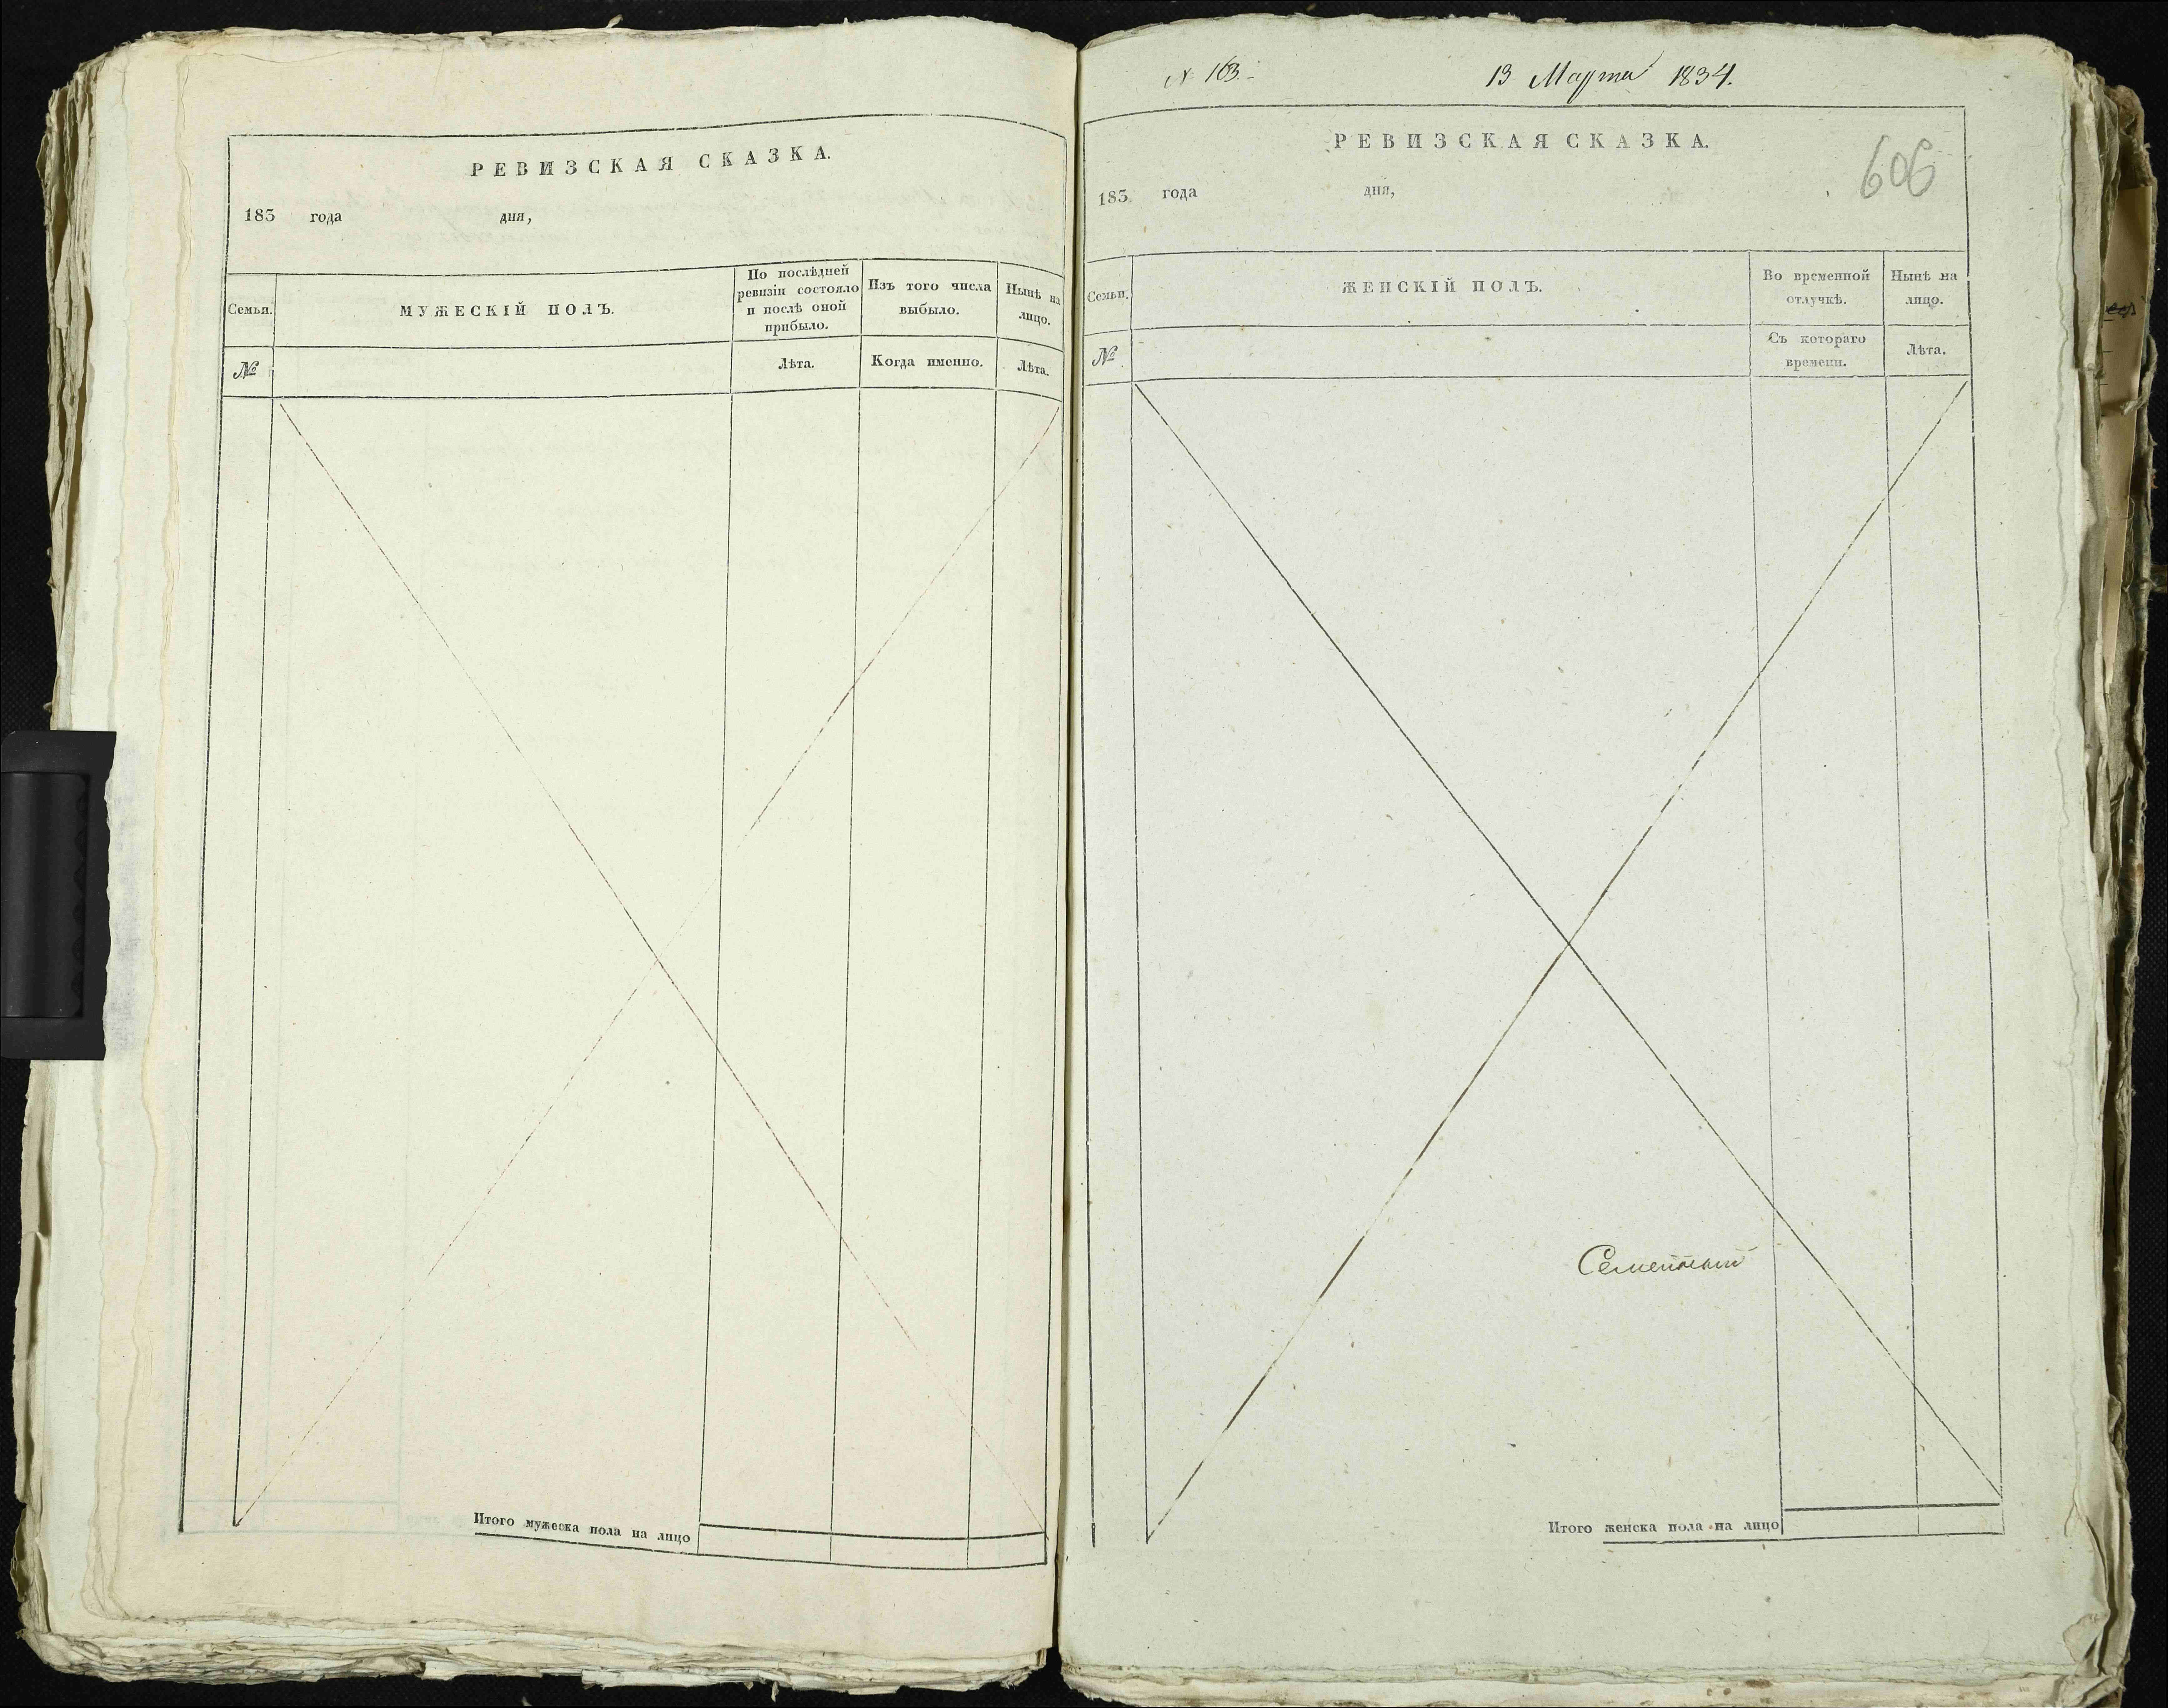 РЕВИЗСКАЯ СКАЗКА.
183 года дня,
Семьи.
МУЖЕСКІЙ ПОЛЪ.
По послѣдней
ревизіи состояло
и послѣ оной
прибыло.
Изъ того числа
выбыло.
Нынѣ на
лицо.
№
Лѣта.
Когда именно.
Лѣта.
Итого мужеска пола на лицо
N 163.
13 Марта 1834.
РЕВИЗСКАЯ СКАЗКА.
606
183 года дня,
Семьи.
ЖЕНСКІЙ ПОЛЪ.
Во временной
отлучкѣ.
Нынѣ на
лицо.
№
Съ котораго
времени.
Лѣта.
Итого женска пола на лицо